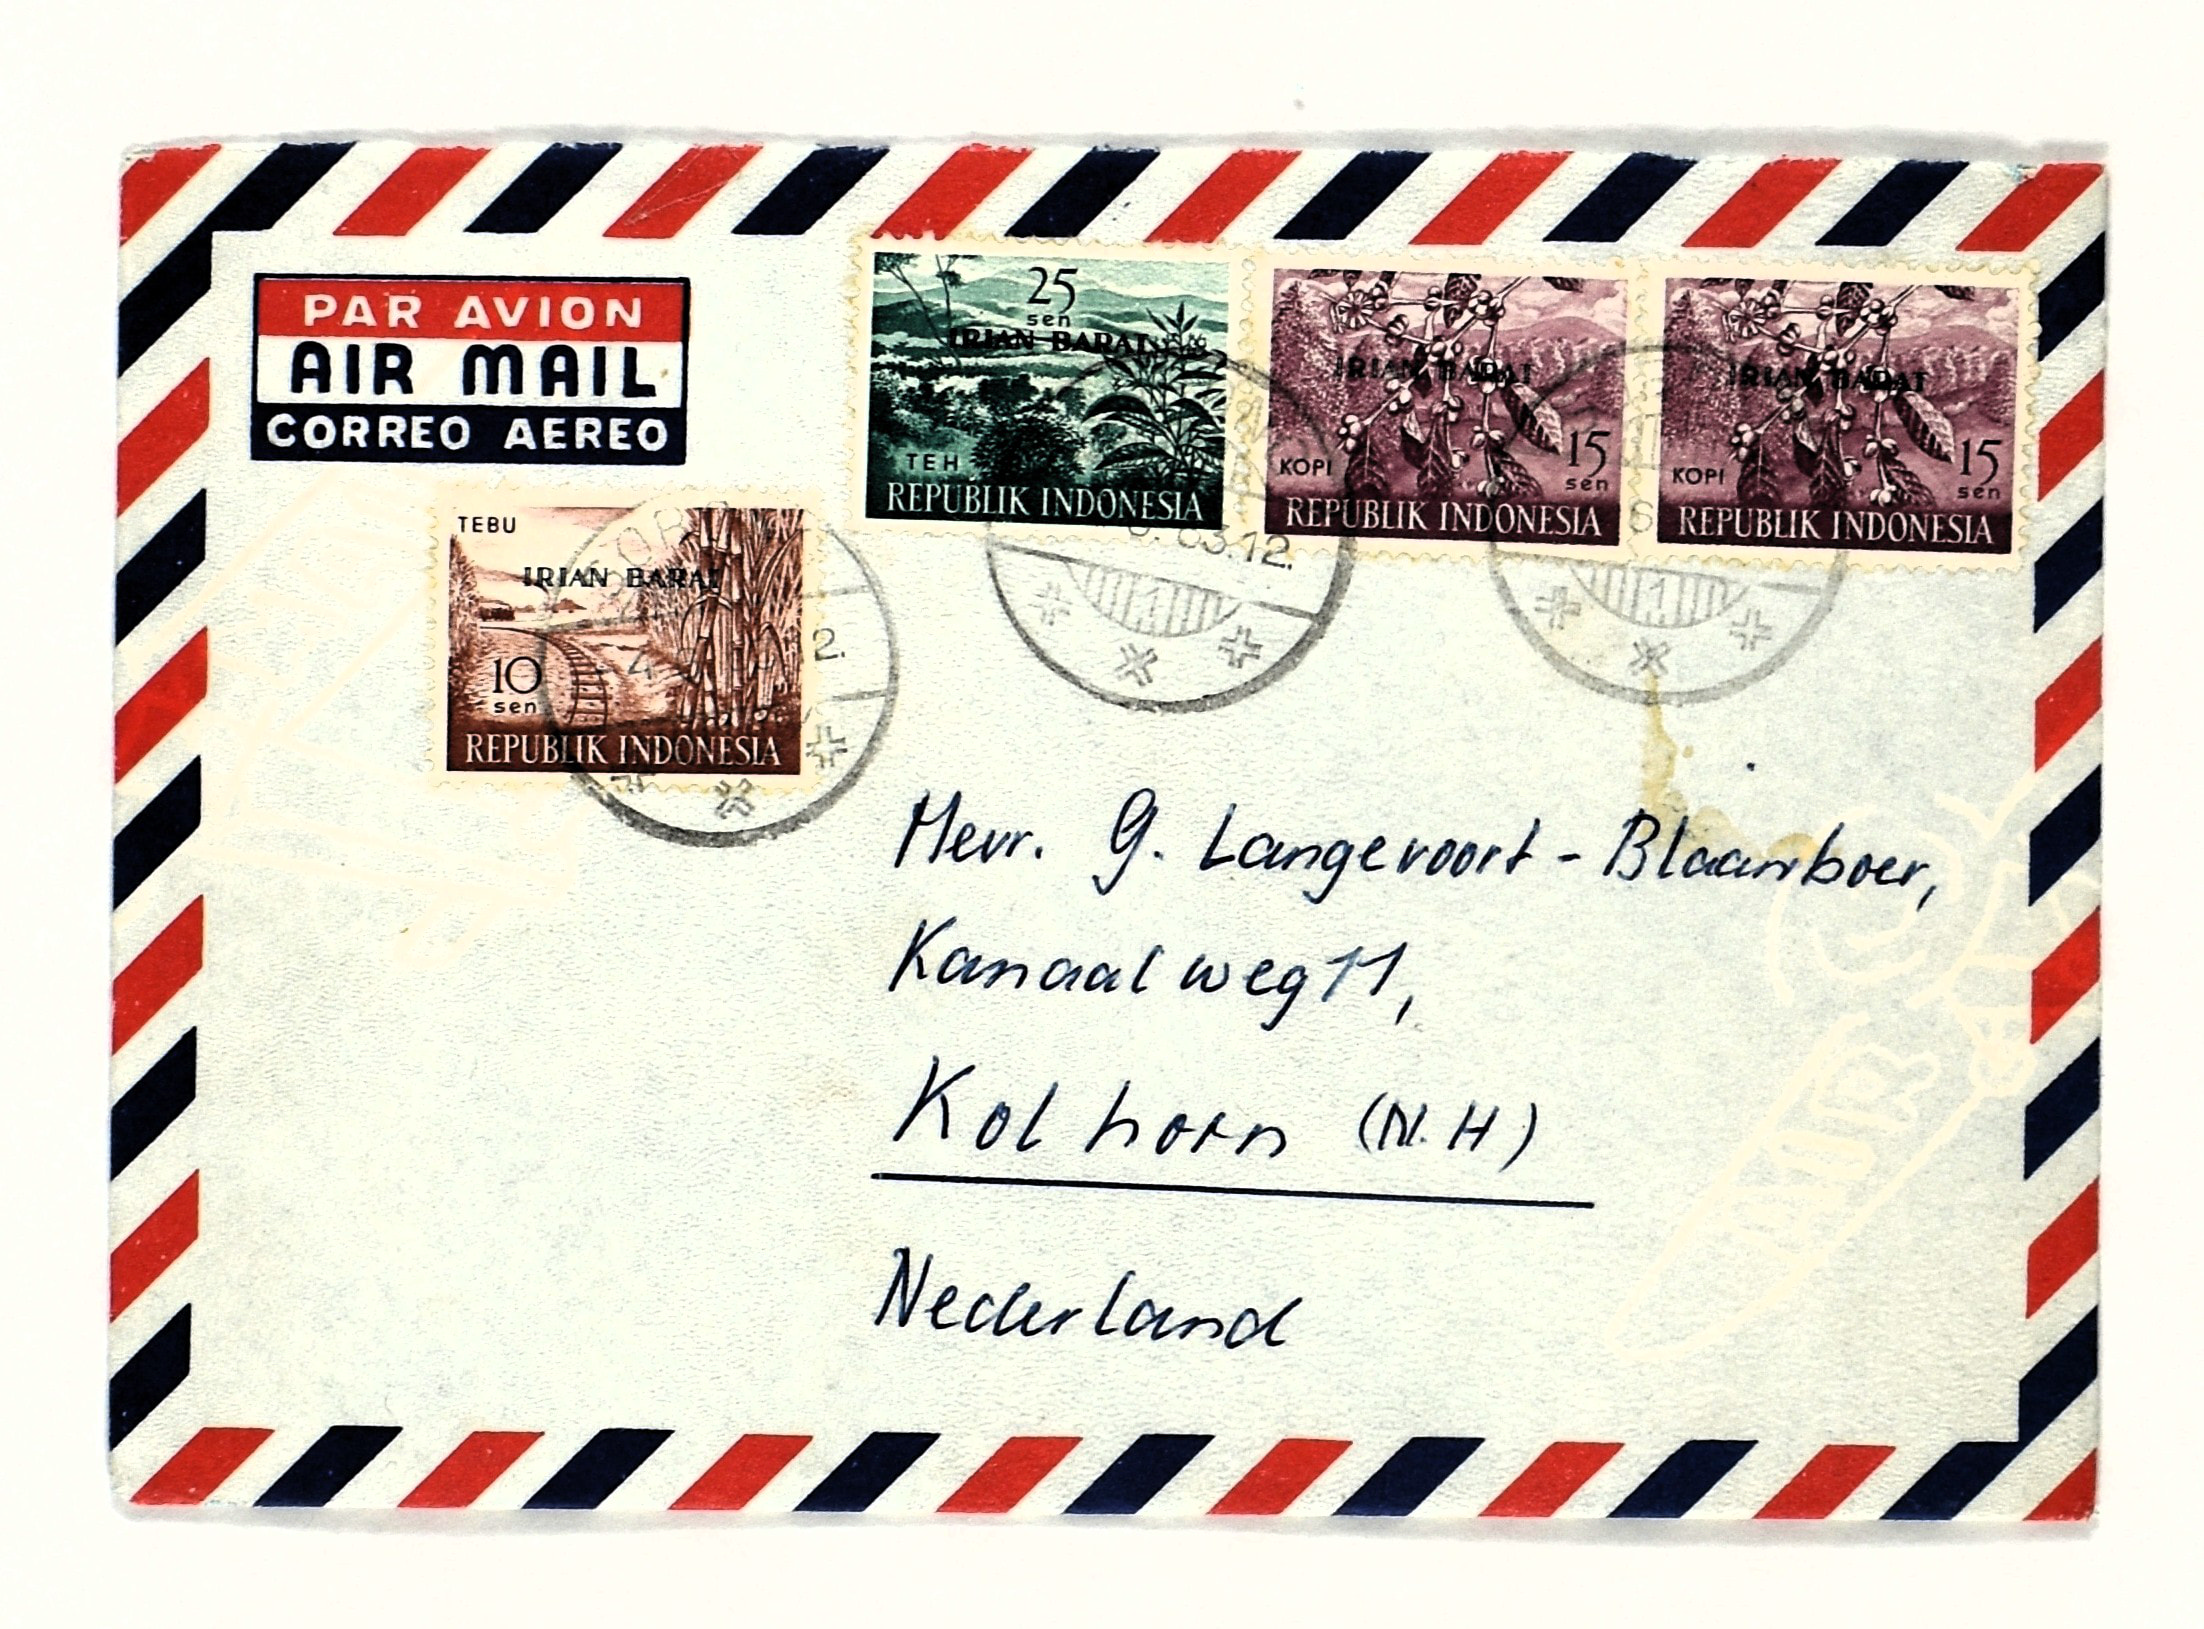 PAR AVION
AIR MAIL
CORREO AEREO
25
sen
IRIAN BARAT
TEH
REPUBLIK INDONESIA
IRIAN BARAT
KOPI
15
sen
REPUBLIK INDONESIA
IRIAN BARAT
KOPI
15
sen
REPUBLIK INDONESIA
TEBU
IRIAN BARAT
10
sen
REPUBLIK INDONESIA
63.12.
1
1
4
2.
Mevr. G. Langevoort - Blaauwboer,
Kanaalweg 11,
Kolhorn (N.H)
Nederland